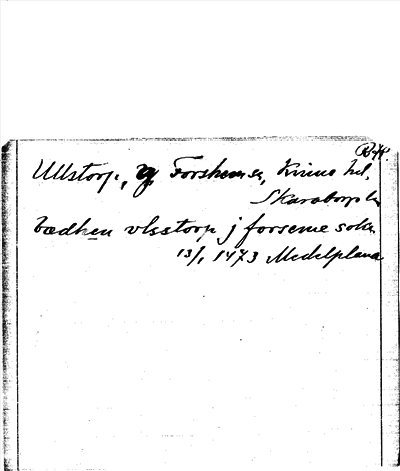 Ullstorp, Forshems sn, Kinne hd,
Skaraborgs l.
bædhen vlsstorp j forseme sokn
13/1 1473 Medelplana